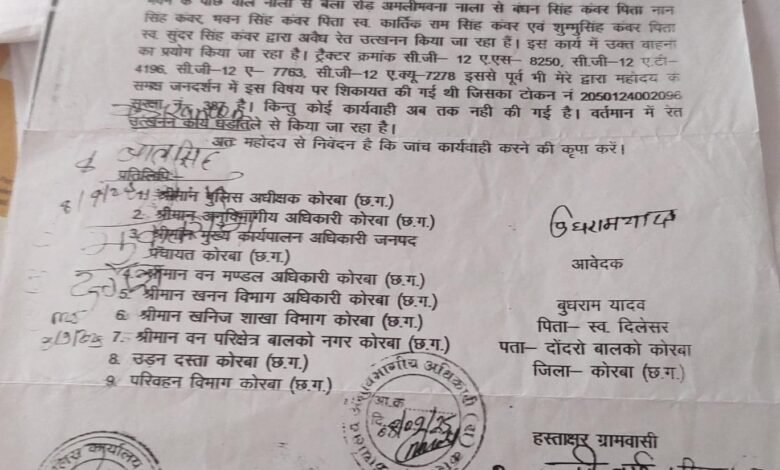 के पीछे वाले नाला से बेला रोड अमलीभवना नाला से बंधन सिंह कंवर पिता नान
सिंह कंवर, भवन सिंह कंवर पिता स्व. कार्तिक राम सिंह कंवर एवं शुम्मुसिंह कंवर पिता
स्व. सुंदर सिंह कंवर द्वारा अवैध रेत उत्खनन किया जा रहा है। इस कार्य में उक्त वाहनो
का प्रयोग किया जा रहा है। ट्रैक्टर क्रमांक सी.जी- 12 ए.एस- 8250, सी.जी-12 ए.टी-
4196, सी.जी-12 ए- 7763, सी.जी-12 ए.क्यू-7278 इससे पूर्व भी मेरे द्वारा महोदय के
समक्ष जनदर्शन में इस विषय पर शिकायत की गई थी जिसका टोकन नं 2050124002096
है। किन्तु कोई कार्यवाही अब तक नही की गई है। वर्तमान में रेत
उत्खनन कार्य धड़ल्ले से किया जा रहा है।
अतः महोदय से निवेदन है कि जांच कार्यवाही करने की कृपा करें।
प्रतिलिपि:-
1. श्रीमान पुलिस अधीक्षक कोरबा (छ.ग.)
2. श्रीमान अनुविभागीय अधिकारी कोरबा (छ.ग.)
3. श्रीमान मुख्य कार्यपालन अधिकारी जनपद
पंचायत कोरबा (छ.ग.)
4. श्रीमान वन मण्डल अधिकारी कोरबा (छ.ग.)
5. श्रीमान खनन विभाग अधिकारी कोरबा (छ.ग.)
6. श्रीमान खनिज शाखा विभाग कोरबा (छ.ग.)
7. श्रीमान वन परिक्षेत्र बालको नगर कोरबा (छ.ग.)
8. उड़न दस्ता कोरबा (छ.ग.)
9. परिवहन विभाग कोरबा (छ.ग.)
बुधराम यादव
आवेदक
बुधराम यादव
पिता- स्व. दिलेसर
पता- दोंदरो बालको कोरबा
जिला- कोरबा (छ.ग.)
हस्ताक्षर ग्रामवासी